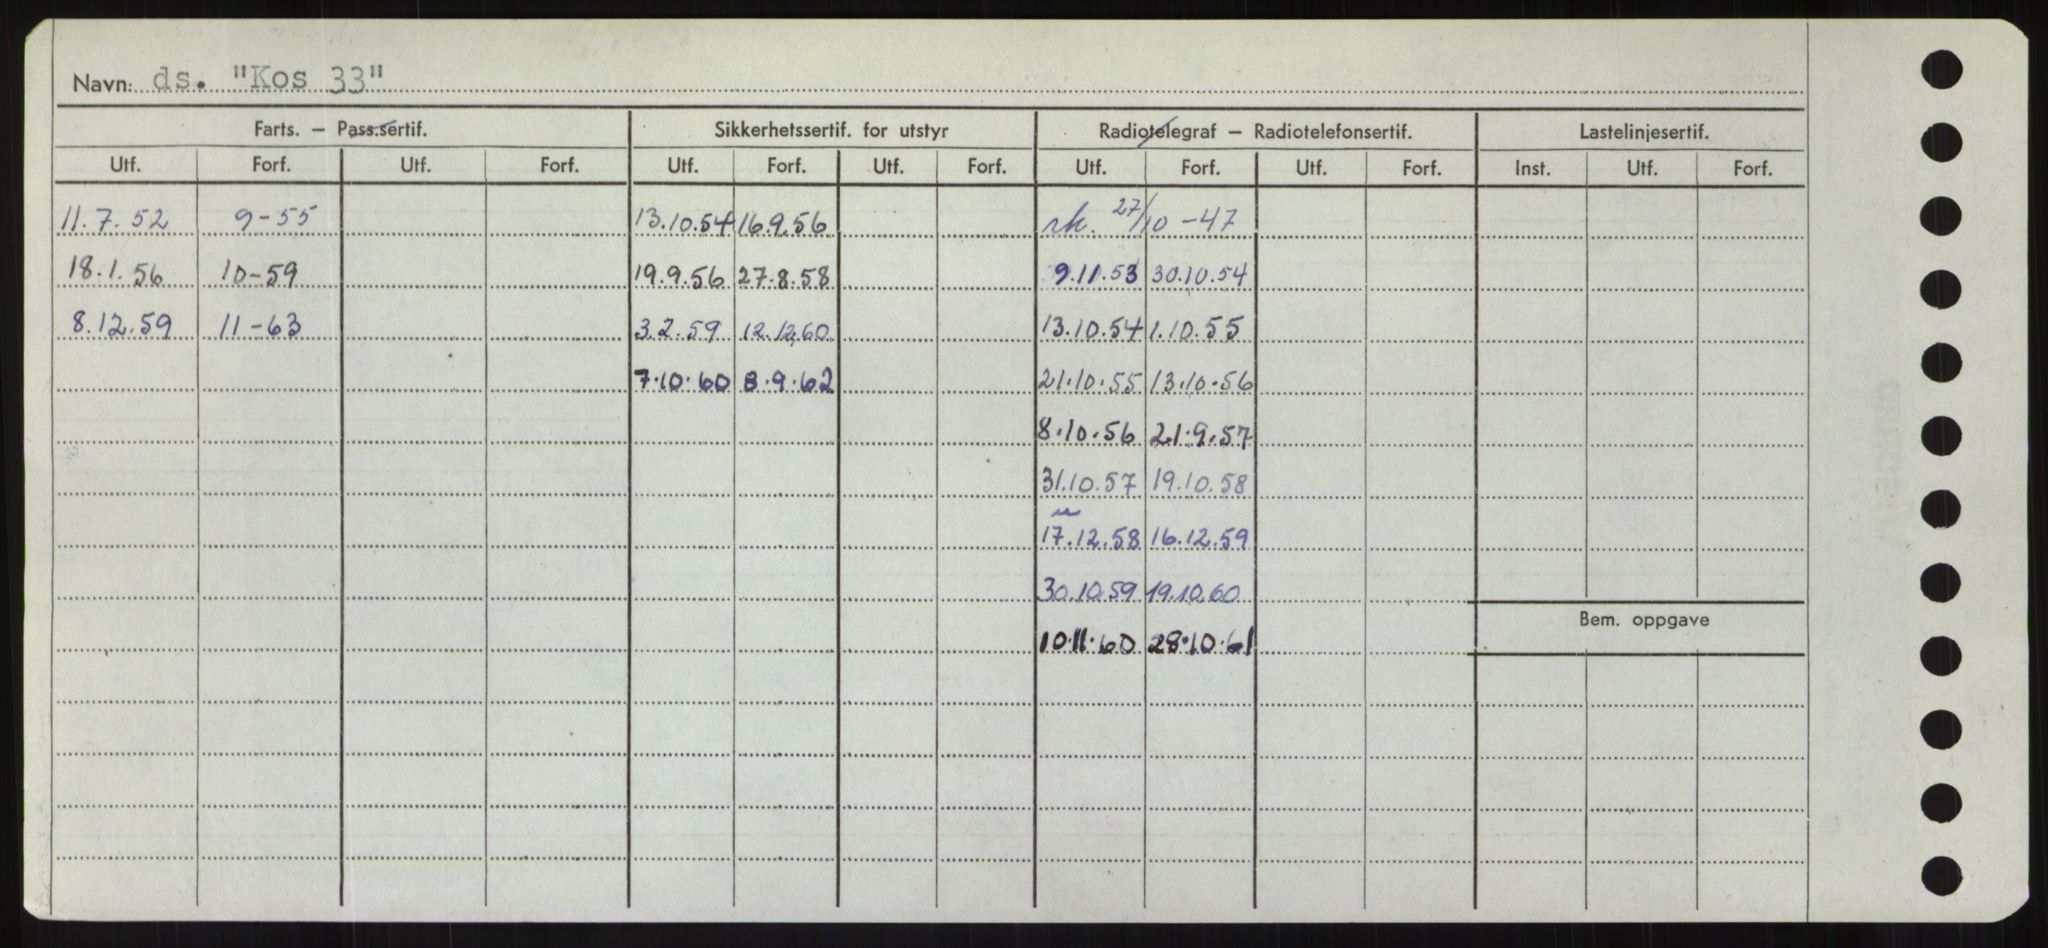 Navn: ds. "Kos 33"
Farts. – Pass.sertif. Sikkerhetssertif. for utstyr Radiotelegraf – Radiotelefonsertif. Lastelinjesertif.
Utf. Forf. Utf. Forf. Utf. Forf. Utf. Forf. Utf. Forf. Utf. Forf. Inst. Utf. Forf.
11.7.52 9-55 13.10.54 16.9.56 rk. 27/10-47
18.1.56 10-59 19.9.56 27.8.58 9.11.53 30.10.54
8.12.59 11-63 3.2.59 12.12.60 13.10.54 1.10.55
7.10.60 8.9.62 21.10.55 13.10.56
8.10.56 21.9.57
31.10.57 19.10.58
17.12.58 16.12.59
30.10.59 19.10.60
Bem. oppgave
10.11.60 28.10.61